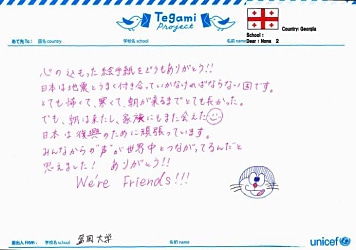 Tegami
Project
あて先To : 国名country : 学校名school 名前name
Country: Georgia
School :
Dear : Name 2
心の込もった絵手紙をどうもありがとう!!
日本は地震とうまく付き合っていかなければならない国です。
とても怖くて、寒くて、朝が来るまでとても長かった。
でも、朝は来たし、家族にもまた会えた
日本は復興のために頑張っています。
みんなからの"声"が世界中とつながってるんだと
思えました! ありがとう!!
We're Friends!!!
差出人From : 学校名school 名前name
盛岡大学
unicef